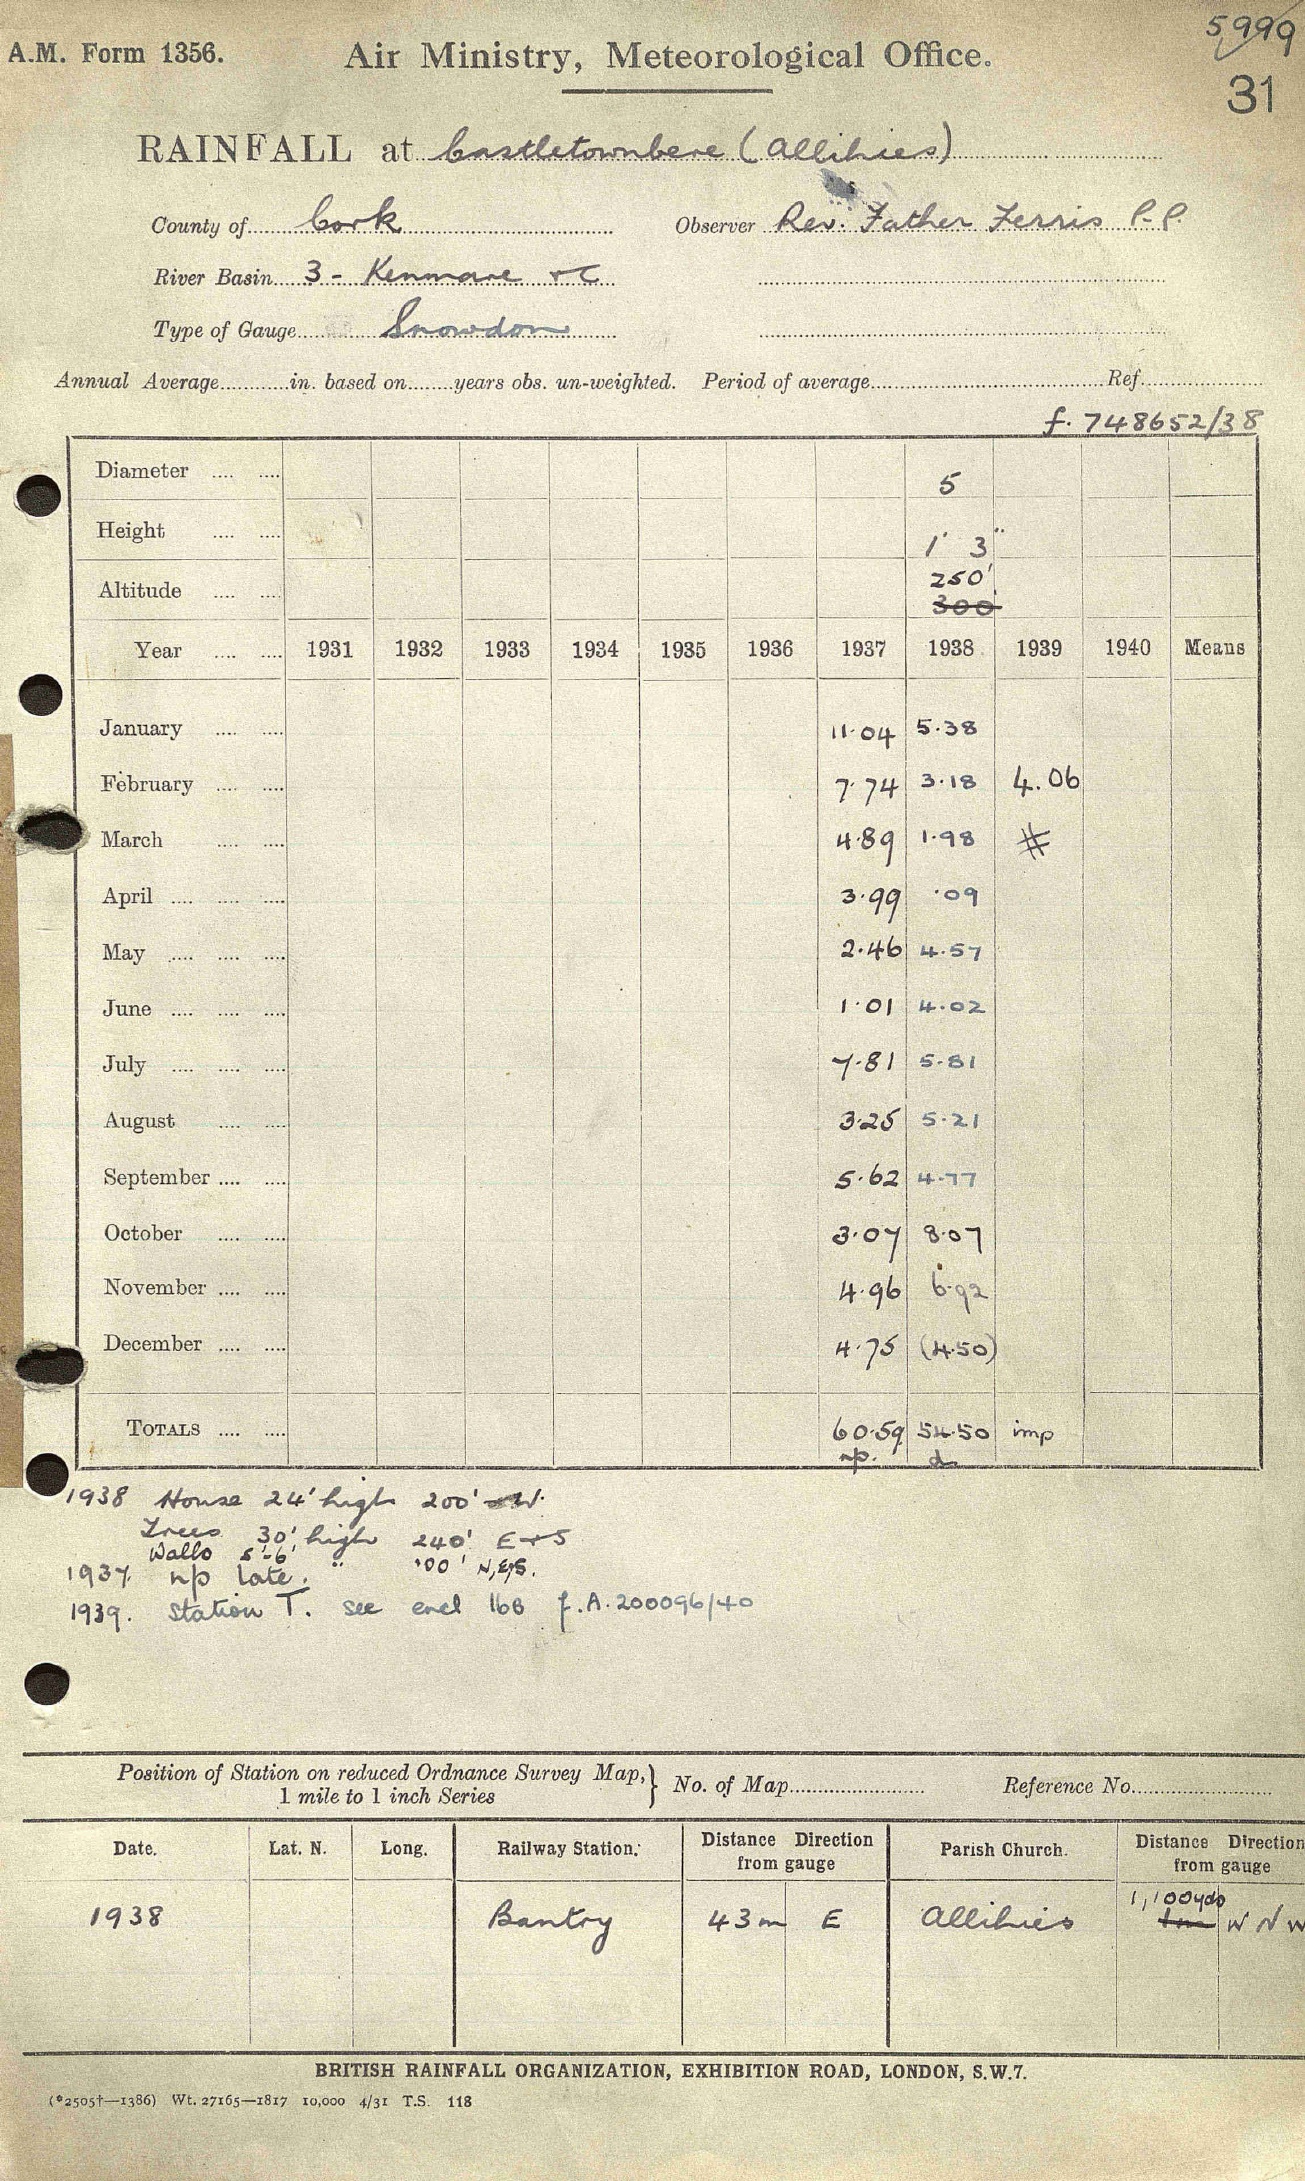 5999
A.M. Form 1356. Air Ministry, Meteorological Office.
31
RAINFALL at Castletownbere (Allihies)
County of Cork Observer Rev. Father Ferris P.P.
River Basin 3 - Kenmare &c
Type of Gauge Snowdon
Annual Average............in. based on.......years obs. un-weighted. Period of average.................Ref.............
f. 748652/38
Diameter .... .... 5
Height .... .... 1' 3"
Altitude .... .... 250'
300
Year .... .... 1931 1932 1933 1934 1935 1936 1937 1938 1939 1940 Means
January .... .... 11.04 5.38
February .... .... 7.74 3.18 4.06
March .... .... 4.89 1.98 #
April .... .... .... 3.99 .09
May .... .... .... 2.46 4.57
June .... .... .... 1.01 4.02
July .... .... .... 7.81 5.81
August .... .... 3.25 5.21
September .... .... 5.62 4.77
October .... .... 3.07 8.07
November .... .... 4.96 6.92
December .... .... 4.75 (4.50)
TOTALS .... .... 60.59 54.50 imp
np.
1938 House 24' high 200' W.
Trees 30' high 240' E + S
Walls 5'-6' " 100' N,E,S.
1937. np late.
1939. Station T. see encl 16B f.A.200096/40
Position of Station on reduced Ordnance Survey Map, } No. of Map............ Reference No............
1 mile to 1 inch Series
Date. Lat. N. Long. Railway Station. Distance Direction Parish Church. Distance Direction
from gauge from gauge
1,100 yds
1938 Bantry 43 m E Allihies 1m W N W
BRITISH RAINFALL ORGANIZATION, EXHIBITION ROAD, LONDON, S.W.7.
(*2505†—1386) Wt. 27165—1817 10,000 4/31 T.S. 118